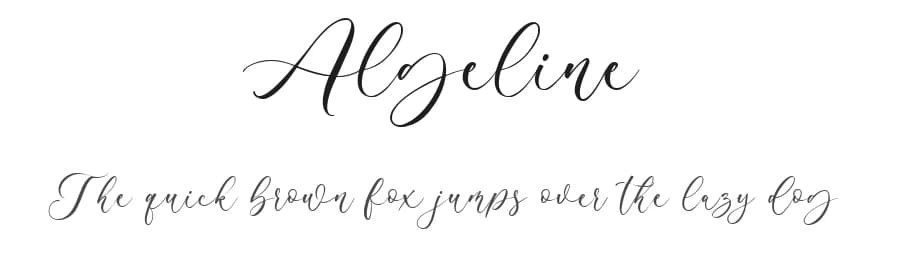 Algeline
The quick brown fox jumps over the lazy dog